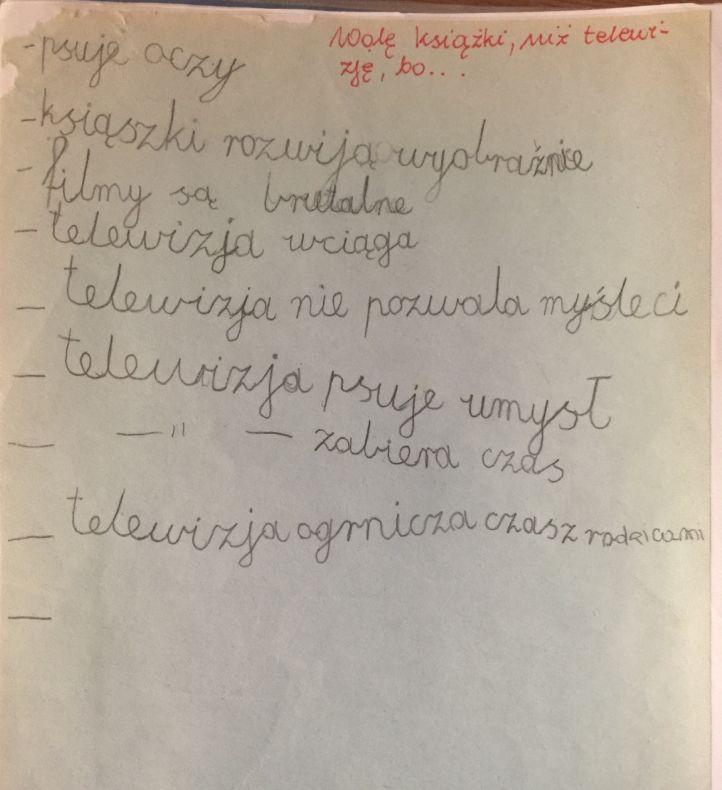 Wolę książki, niż telewi-
zję, bo...
- psuje oczy
- ksiąszki rozwiją wyobraźnie
- filmy są brutalne
- telewizja wciąga
- telewizja nie pozwala myśleci
- telewizja psuje umysł
- —"— zabiera czas
- telewizja ogrnicza czas z rodzicami
-